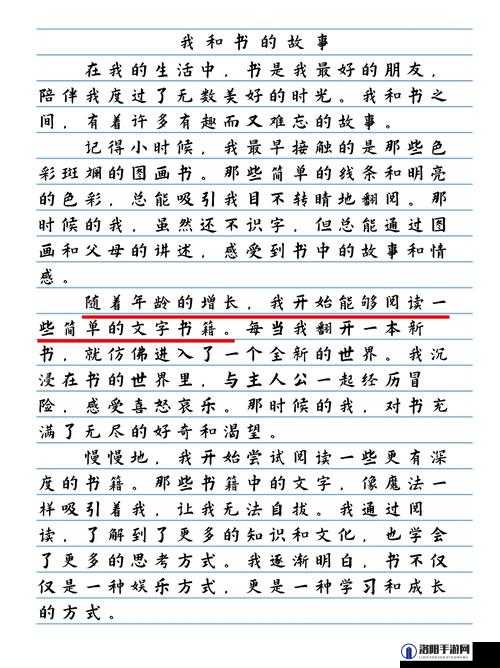 我和书的故事
在我的生活中，书是我最好的朋友，
陪伴我度过了无数美好的时光。我和书之
间，有着许多有趣而又难忘的故事。
记得小时候，我最早接触的是那些色
彩斑斓的图画书。那些简单的线条和明亮
的色彩，总能吸引我目不转睛地翻阅。那
时候的我，虽然还不识字，但总能通过图
画和父母的讲述，感受到书中的故事和情
感。
随着年龄的增长，我开始能够阅读一
些简单的文字书籍。每当我翻开一本新
书，就仿佛进入了一个全新的世界。我沉
浸在书的世界里，与主人公一起经历冒
险，感受喜怒哀乐。那时候的我，对书充
满了无尽的好奇和渴望。
慢慢地，我开始尝试阅读一些更有深
度的书籍。那些书籍中的文字，像魔法一
样吸引着我，让我无法自拔。我通过阅
读，了解到了更多的知识和文化，也学会
了更多的思考方式。我逐渐明白，书不仅
仅是一种娱乐方式，更是一种学习和成长
的方式。
洛阳手游网